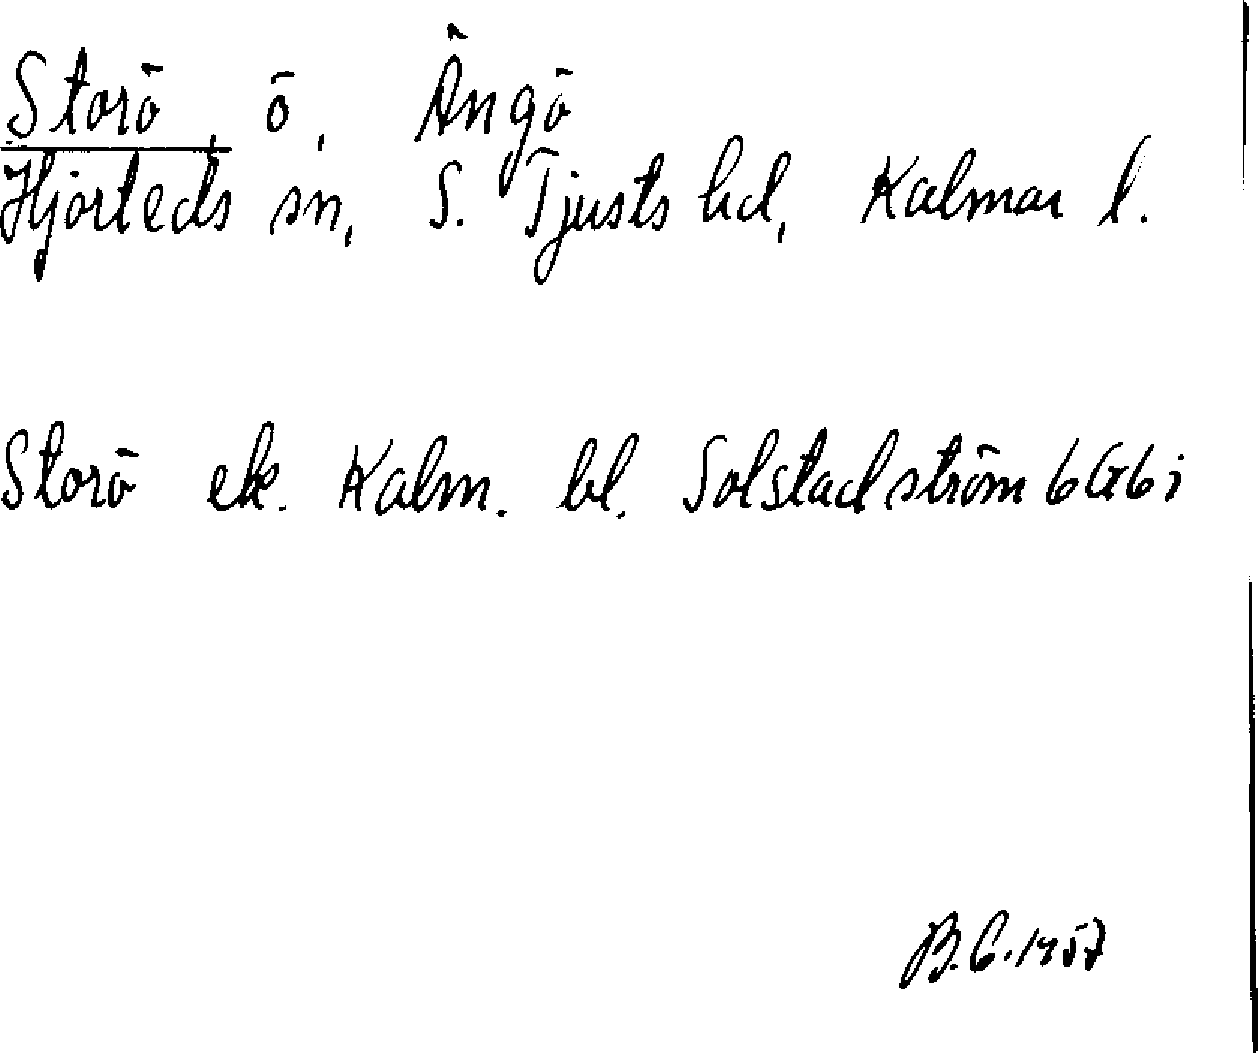 Storö, ö, Ängö
Hjorteds sn, S. Tjusts hd, Kalmar l.
Storö ek. Kalm. bl. Solstadström 6G6i
B.C. 1957